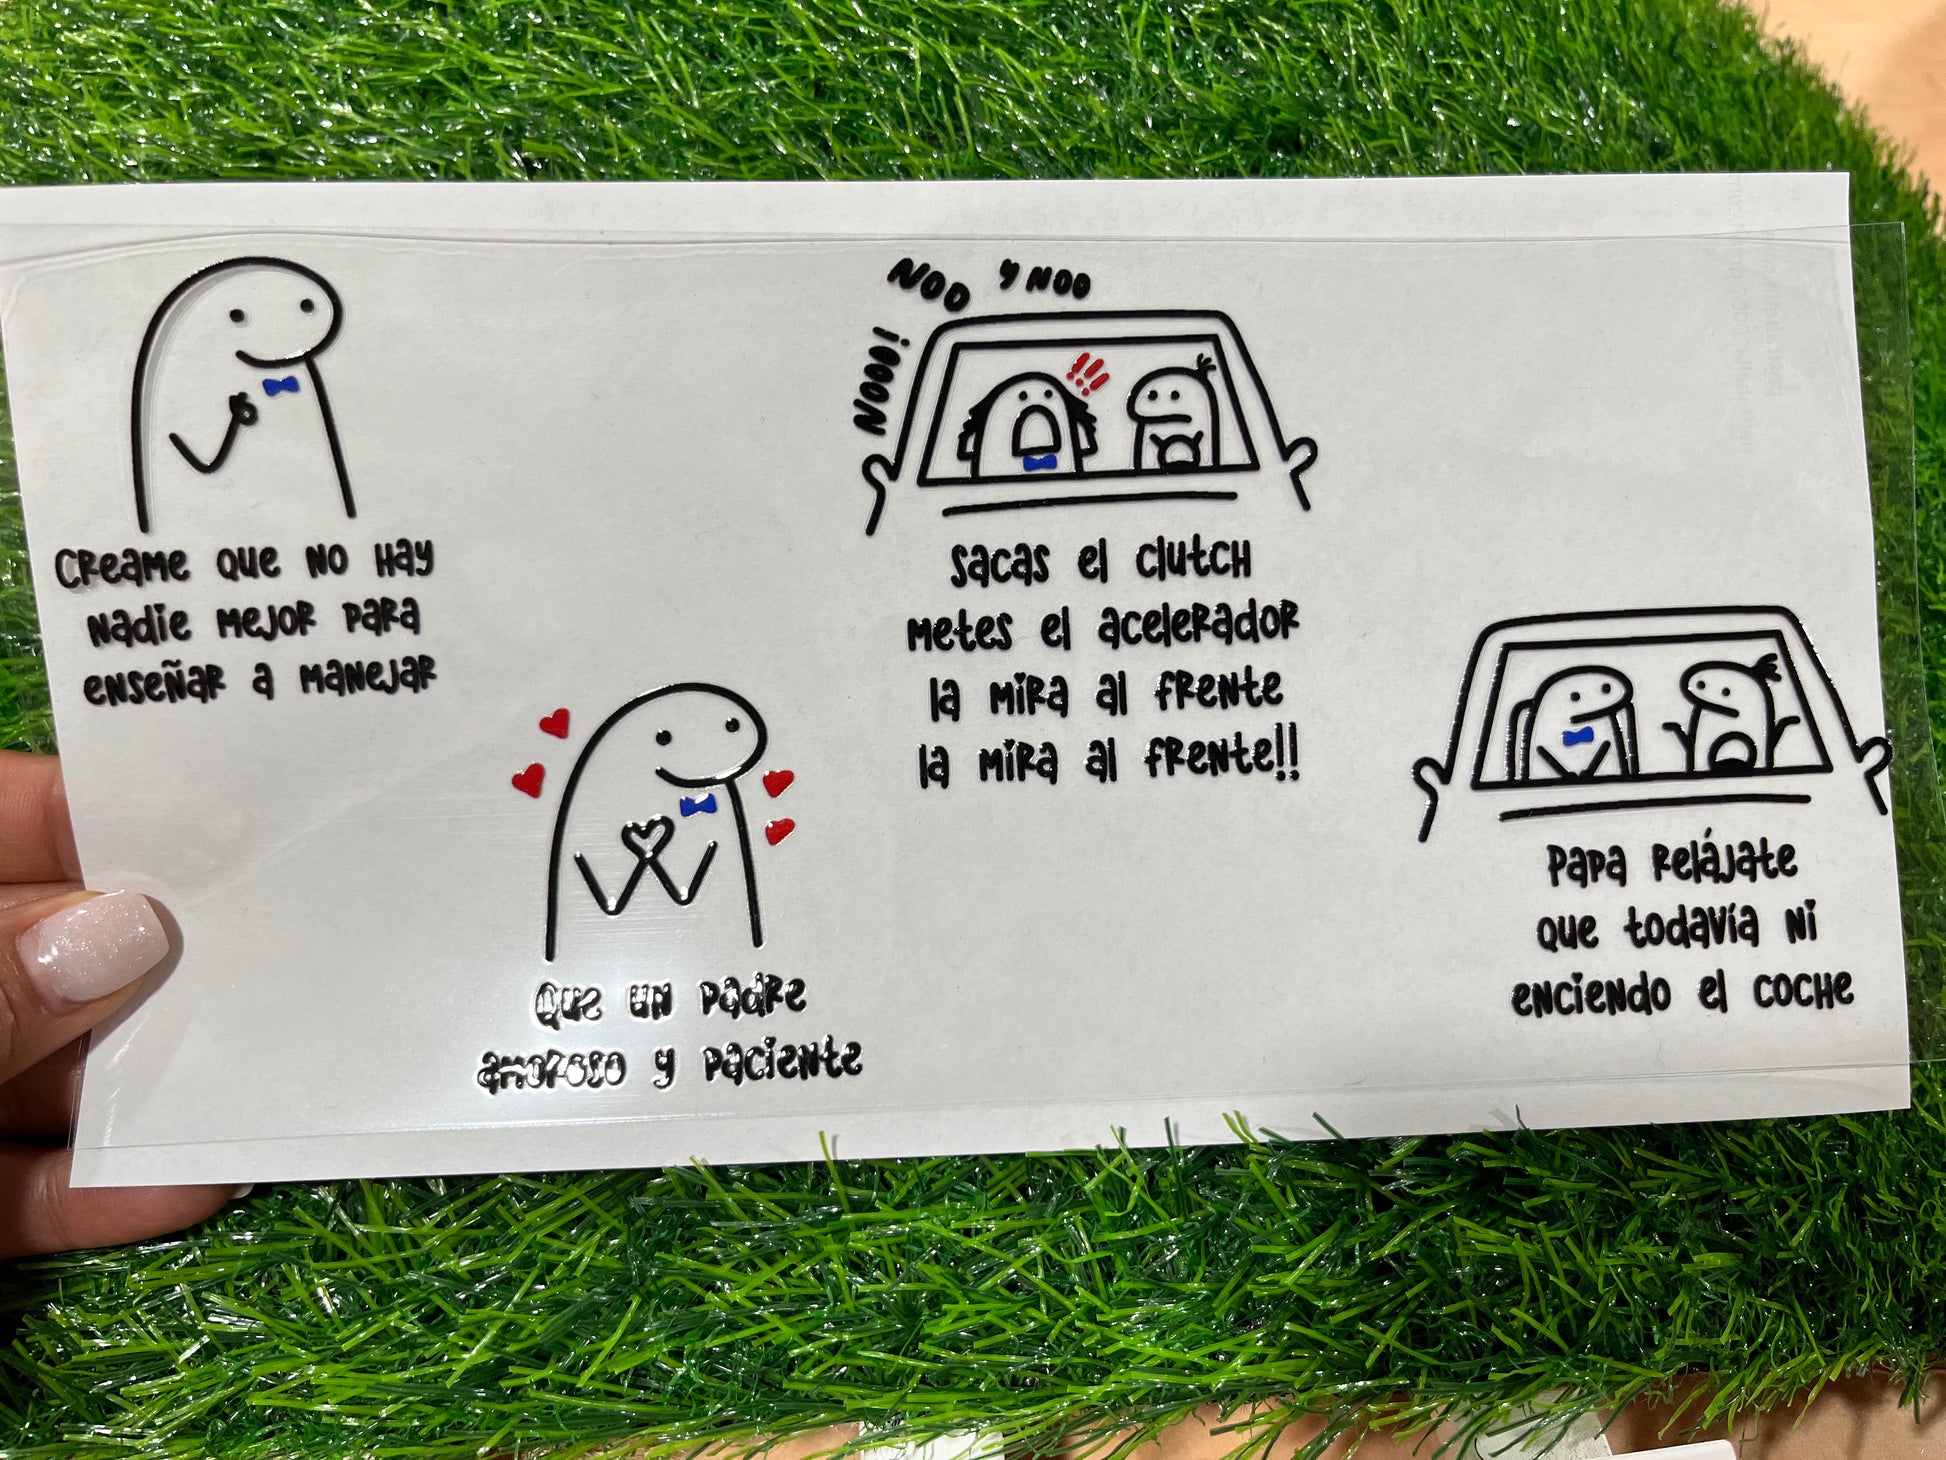 Creame que no hay
nadie mejor para
enseñar a manejar
Que un padre
amoroso y paciente
NOOO!
NOO
y NOO
!!!
Sacas el clutch
metes el acelerador
la mira al frente
la mira al frente!!
Papa relájate
que todavía ni
enciendo el coche